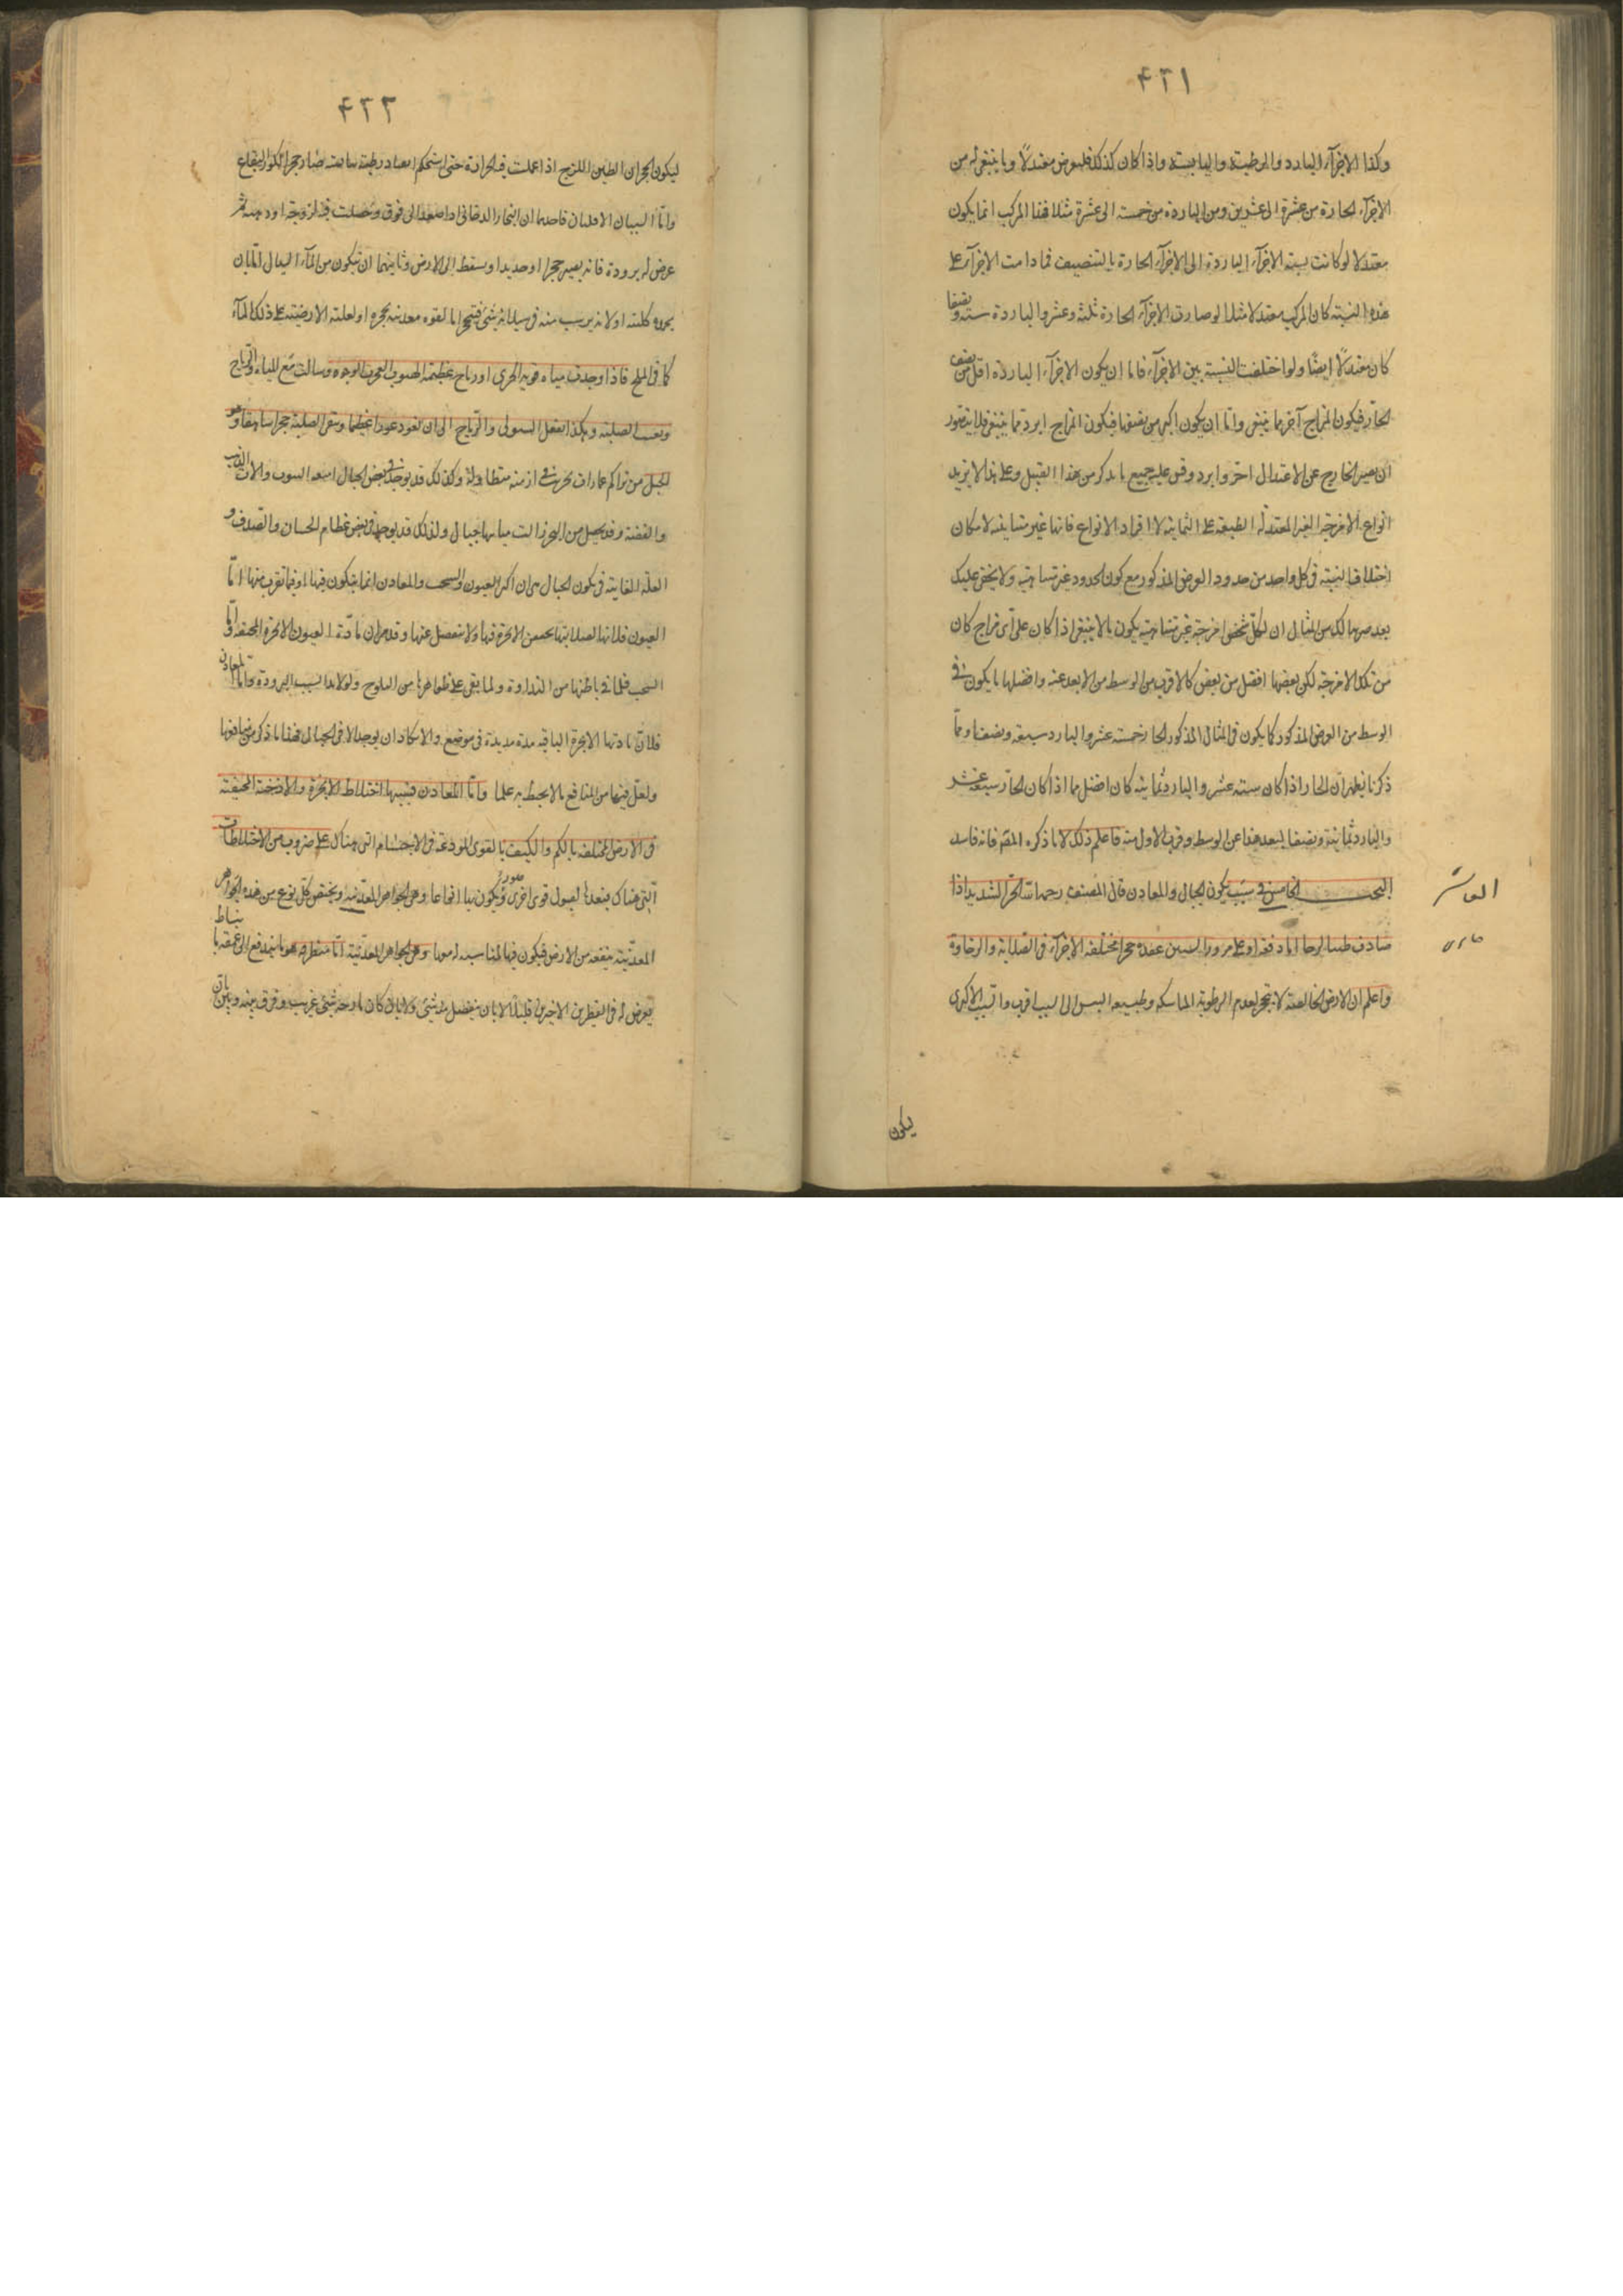 ٤٢١
وكذا الاجزاء الباردة والرطبة واليابسة واذا كان كذلك فليعرض معتدلاً وما ينبغي له من
الاجزاء الحارة من عشرة الى عشرين ومن الباردة من خمسة الى عشرة مثلا فهذا المركب انما يكون
معتدلا لو كانت نسبة الاجزاء الباردة الى الاجزاء الحارة بالتنصيف فما دامت الاجزاء على
هذه النسبة كان المركب معتدلا مثلا لو صارت الاجزاء الحارة ثلثة وعشر والباردة ستة ونصفا
كان معتدلاً ايضا ولو اختلفت النسبة بين الاجزاء فاما ان يكون الاجزاء الباردة اقل من نصف
الحار فيكون المزاج آخر مما ينبغي واما ان يكون اكثر من نصفها فيكون المزاج ابرد مما ينبغي فلا يتصور
ان يصير الخارج عن الاعتدال احر وابرد وقس عليه جميع ما يذكر من هذا القبيل وعلى هذا لا يزيد
انواع الامزجة الغير المعتدلة الطبيعة على الثمانية لا افراد الانواع فانها غير متناهية لامكان
اختلاف النسبة في كل واحد من حدود العرض المذكور مع كون الحدود غير متناهية ولا يخفى عليك
بعد ضربها لك من المثال ان لكل شخص امزجة غير متناهية يكون بالا ينبغي اذا كان على اى مزاج كان
من تلك الامزجة لكن بعضها افضل من بعض كالاقرب من الوسط من الابعد عنه وافضلها ما يكون في
الوسط من العرض المذكور كما يكون في المثال المذكور الحار خمسة عشر والبارد سبعة ونصفا ومما
ذكرنا يظهر ان الحار اذا كان ستة عشر والبارد ثمانية كان افضل مما اذا كان الحار سبعة عشر
والبارد ثمانية ونصفا لبعد هذا عن الوسط وقرب الاول منه فاعلم ذلك لا ما ذكره القم فانه فاسد
البحث الخامس في سبب تكون الجبال والمعادن قال المصنف رحمه الله الحر الشديد اذا
صادف طينا لزجا اما دفعة او على مرور السنين عقده حجرا مختلفة الاجزاء في الصلابة والرخاوة
واعلم ان الارض الخالصة لا تتحجر لعدم الرطوبة الماسكة وطبيعة اليبس الى السبب اقرب والسبب الاكثرى
العاشر
يكون
٤٢٢
ليكون الحجر ان الطين اللزج اذا عملت فيه الحرارة حتى استحكم انعقاد رطبه بيابسه صار حجرا كوز الفقاع
واما السببان الاقليان فاحدهما ان البخار الدخاني اذا صعد الى فوق وحصلت فيه لزوجة او دهنية ثم
عرض له برودة فانه يصير حجرا او حديدا وسقط الى الارض وثانيهما ان يتكون من الماء السيال اما بان
يجمد كليته او لانه يرسب منه في سيلانه شيء فيتحجر اما لقوة معدنية محجرة او لغلبة الارضية على ذلك الماء
كما في الملح فاذا وجدت مياه قوية الجرى او رياح عظيمة الهبوب الوجوه وسالت مع المياه والرياح
وبقيت الصلبة وهكذا تفعل السيول والرياح الى ان تغور غورا عظيما وتبقى الصلبة حجرا شاهقا وهو
الجبل من تراكم عمارات تخربت في ازمنة متطاولة ولذلك قد يوجد في بعض الجبال والآت الذهب
والفضة وقد يحصل من البحر زالت مياهها جبال ولذلك قد يوجد في بعض عظام الحيتان والصدف و
العلة الغائية في تكون الجبال هي ان اكثر العيون والسحب والمعادن انما يتكون فيها او فيما تقرب منها اما
العيون فلانها لصلابتها تحتقن الابخرة فيها ولا تنفصل عنها وقد مر ان مادة العيون الابخرة المحتقنة واما
السحب فلما في باطنها من النداوة ولما يبقى على ظواهرها من الثلوج بسبب البرودة واما المعادن
فلان مادتها الابخرة الباقية مدة مديدة في موضع والا يكاد ان يوجد الا في الجبال فهذا ما ذكر من منافعها
ولعل فيها من المنافع ما لا نحيط به علما واما المعادن فسببها اختلاط الابخرة والادخنة المحتقنة
في الارض المختلفة بالكم والكيف بالقوى المودعة في الاجسام التي هناك على ضروب من الاختلاطات
التي هناك فيعدها لقبول قوى اخرى وصور يكون بها انواعا وهي الجواهر المعدنية ويختص كل نوع من هذه الجواهر
المعدنية ببقعة من الارض فيكون فيها لمناسبة له معها وهي الجواهر المعدنية اما متطرقة هو ما يندفع الى عمقه بانبساط
يعرض له في القطرين الاخيرين قليلاً لا بان ينفصل منه شيء وفرق بينه وبين